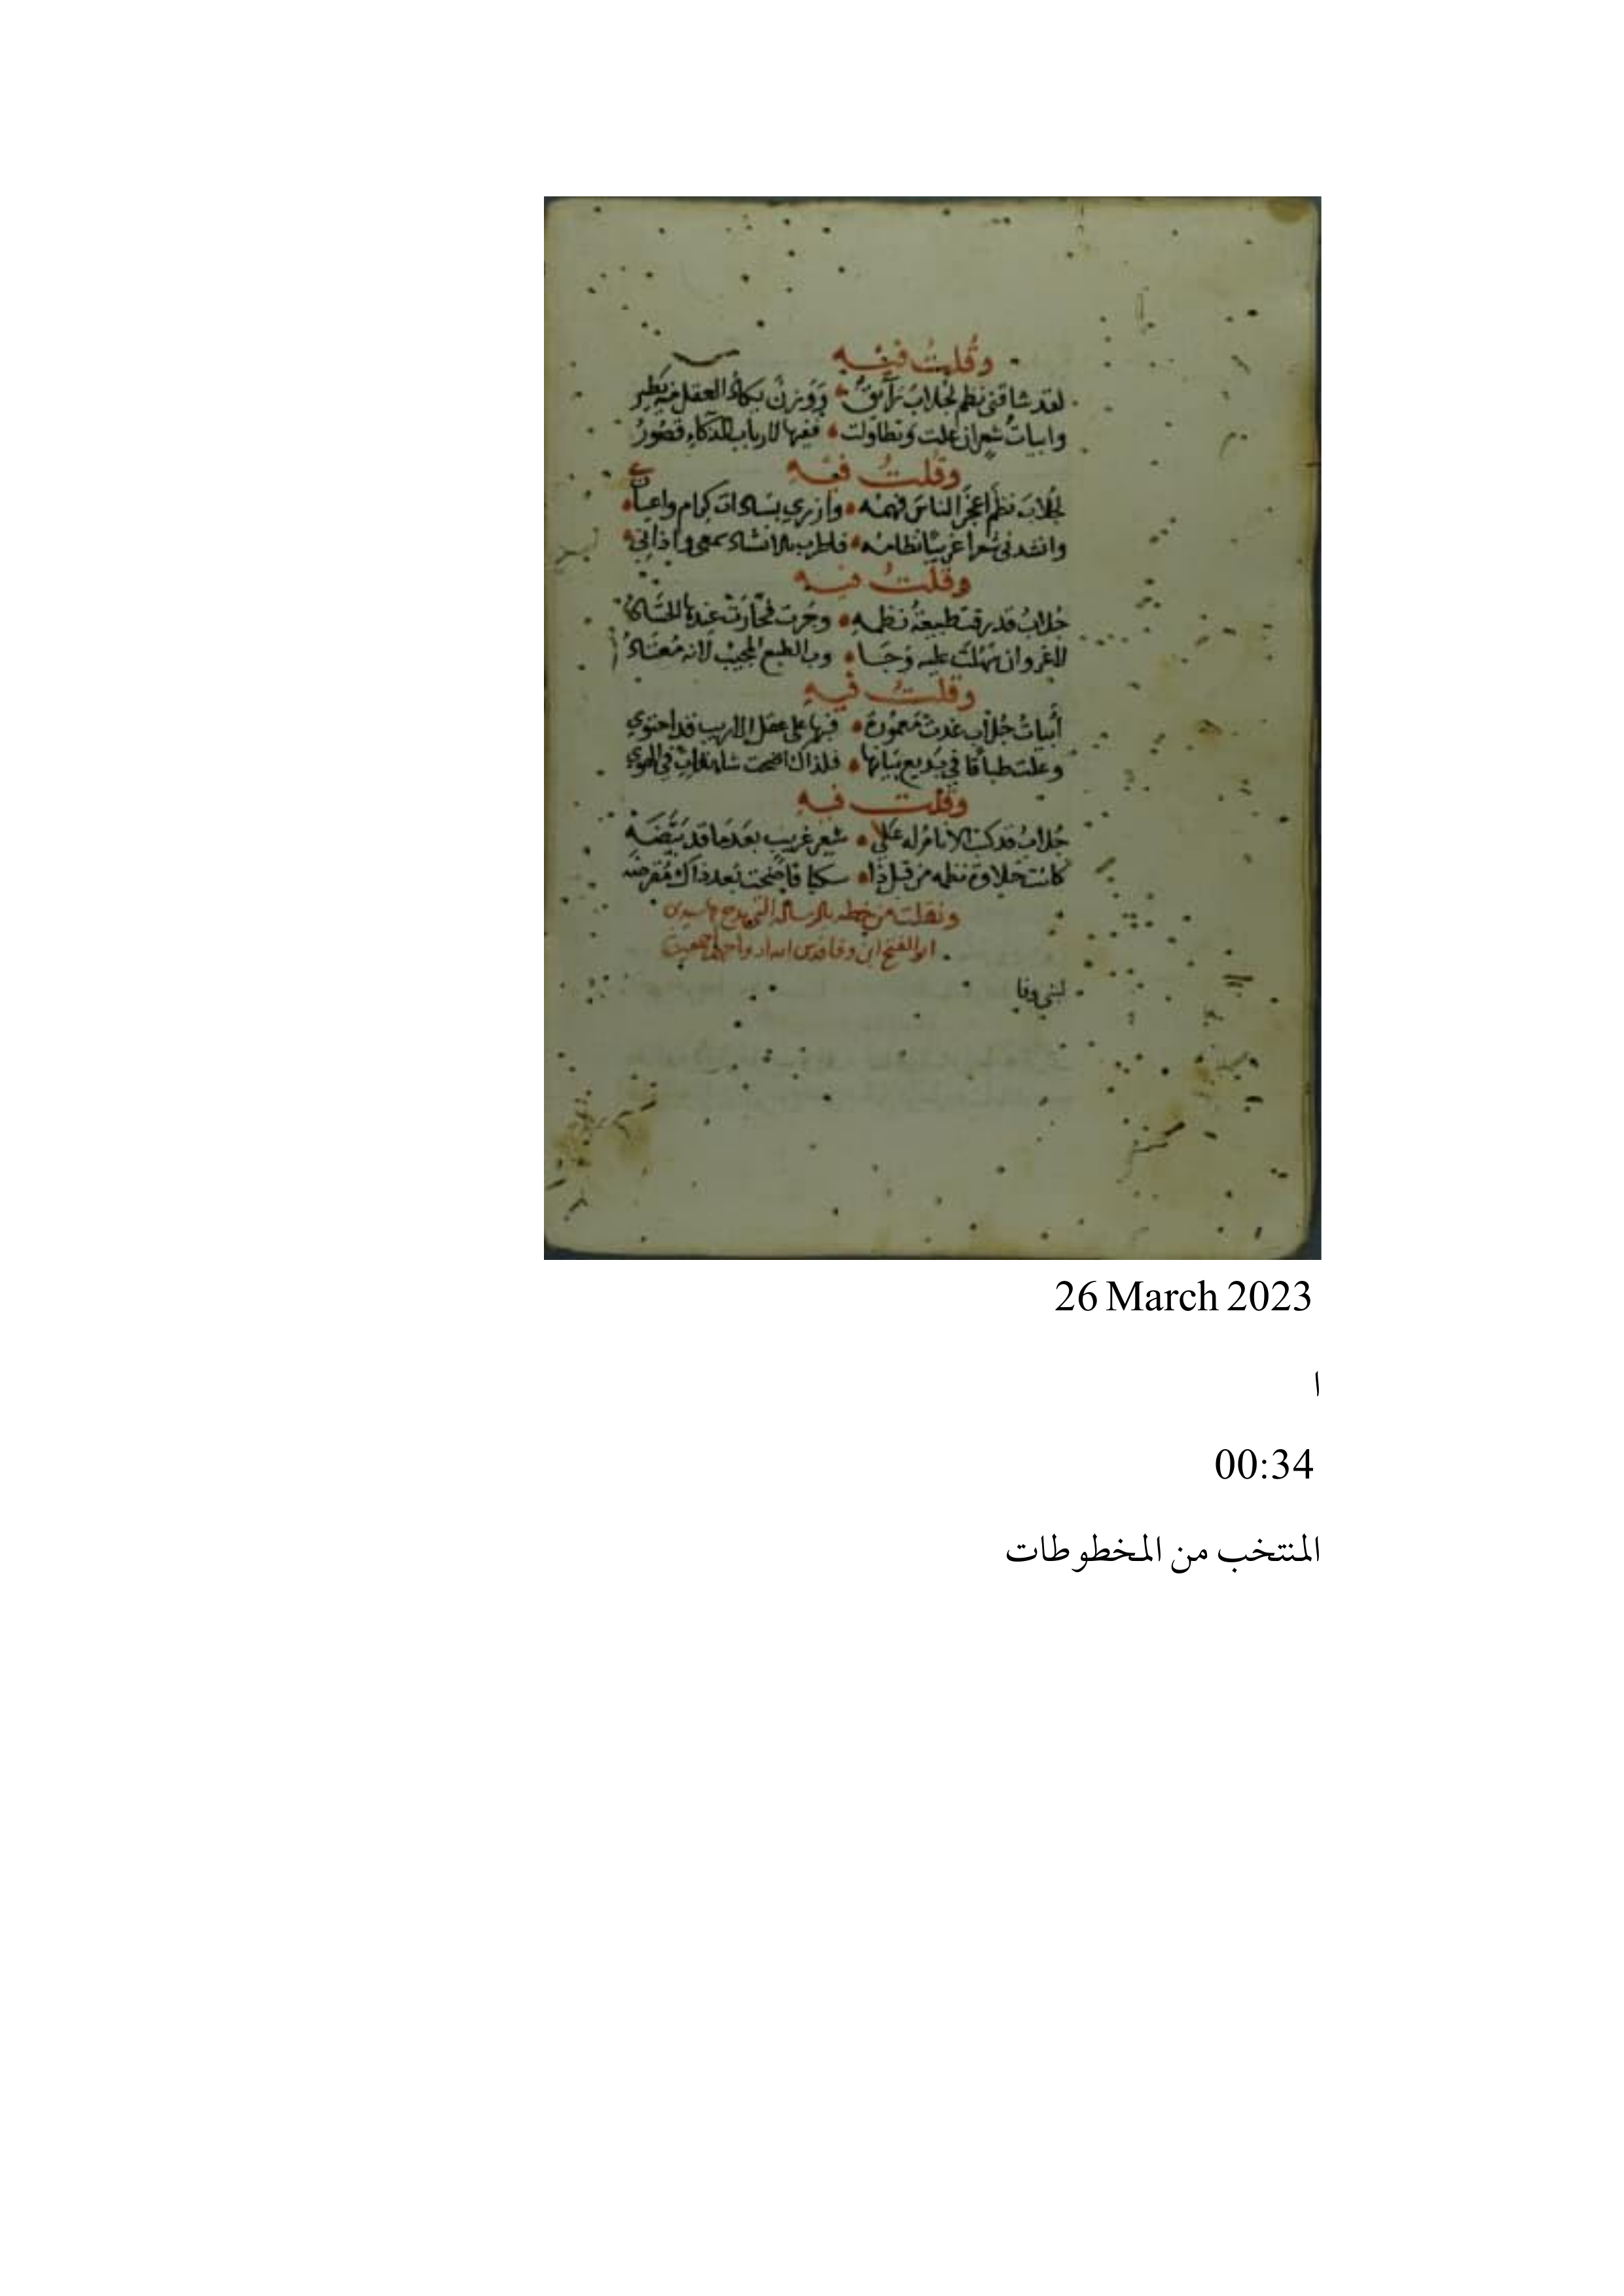 وقلت فيه
لقد شاقني نظم لجلاب رآيق ووزن يكاد العقل منه يطير
وابيات شعر ان علت وتطاولت ففيها لارباب الذكاء قصور
وقلت فيه
لجلاب نظم اعجز الناس فهمه وازري بسادات كرام واعيان
وانشدني شعرا غريبا نظامه فاطرب بالانشاد سمعي واذاني
وقلت فيه
جلاب قد رقت طبيعة نظمه وجرت فحارت عندها
لاغرو ان سهلت عليه وبالطبع المجيب لانه
وقلت فيه
أبيات جلاب غدت معمورة فيها على عقل الاريب قد احتوي
وعلت طباقا في بديع بيانها فلذاك اضحت شامخات في الهوي
وقلت فيه
جلاب قد كت الانام له على شعر غريب بعدما قد بيضه
كانت حلاوة نظمه من قبل ذا سكبا فاضحت بعد ذاك مقرضه
ونقلت من خطه بالرسالة التي مدح بها سيدي
ابو الفتح ابن وفا قدس الله ارواحهم اجمعين
لبني وفا
26 March 2023
ا
00:34
المنتخب من المخطوطات